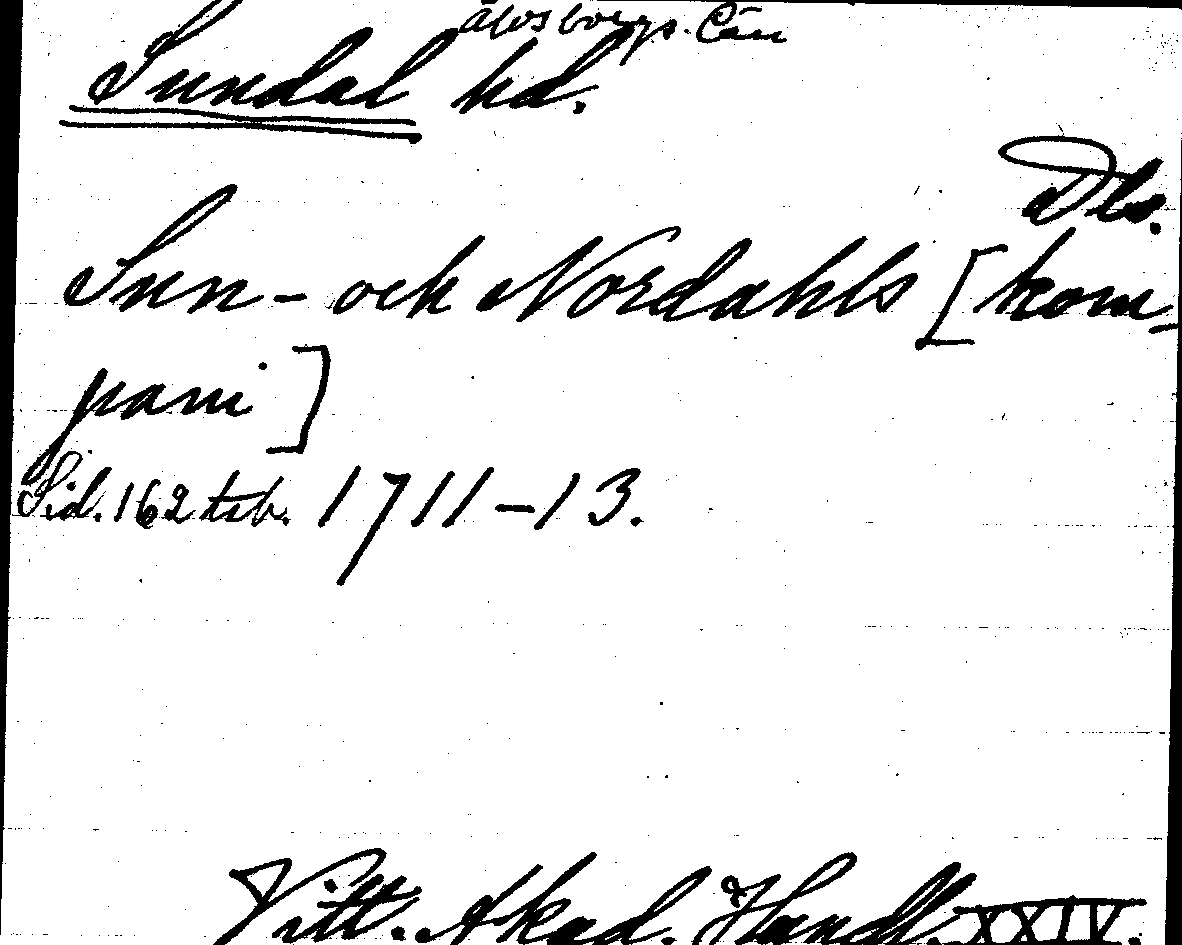 Älvsborgs. Län
Sundal hd.
Dls.
Sun- och Nordahls [kom-
pani]
Sid. 162 tab. 1711-13.
Vitt. Akad. Handl. XXIV.